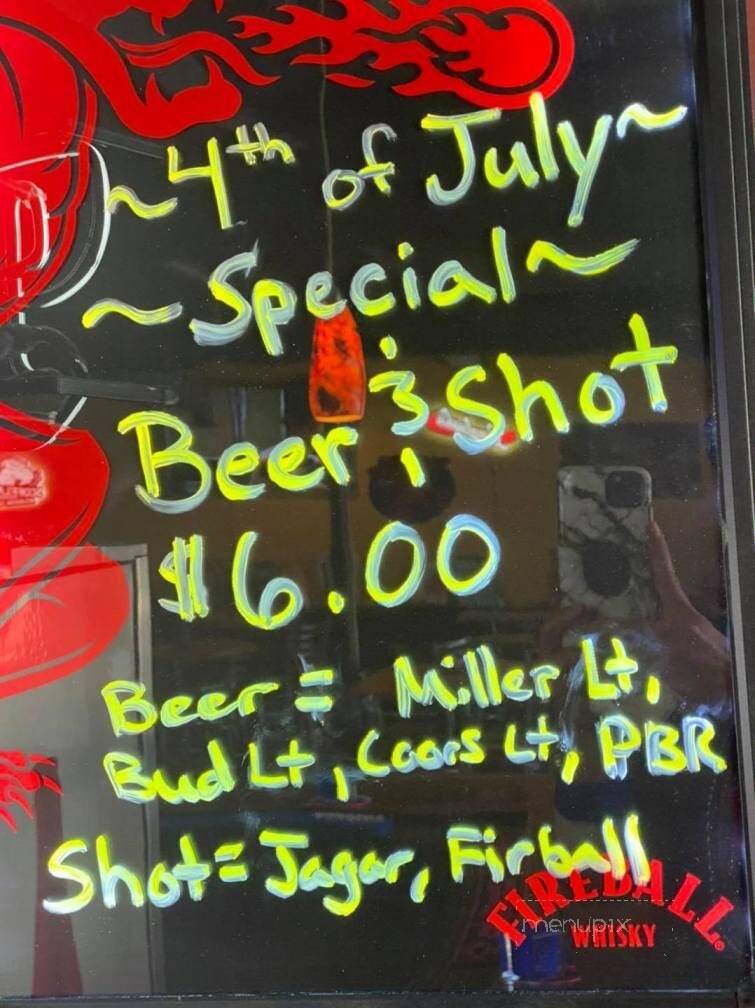 ~4th of July~
~Special~
Beer & Shot
$6.00
Beer = Miller Lt,
Bud Lt, Coors Lt, PBR
Shot = Jagar, Firball
FIREBALL
menupix
WHISKY